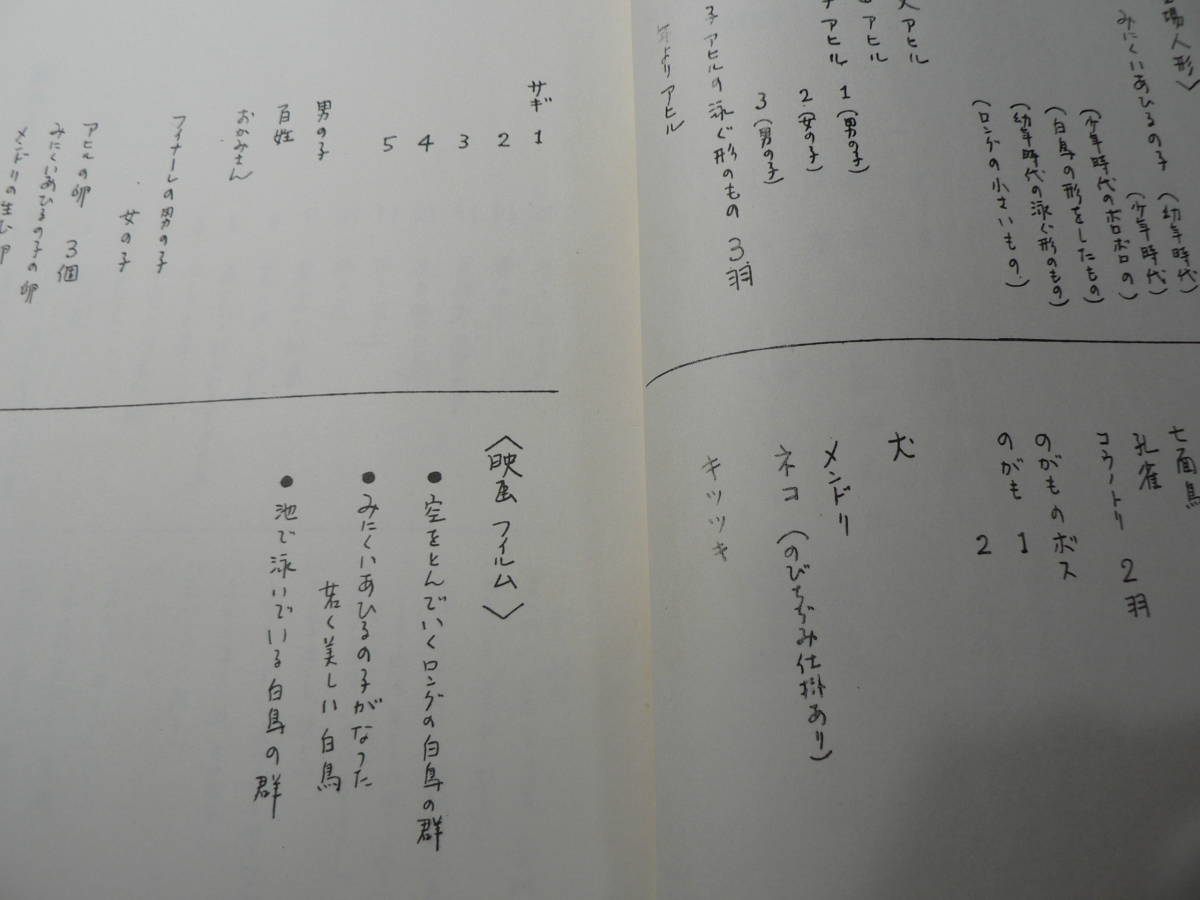 場人形〉
みにくいあひるの子 (幼年時代)
(少年時代)
(少年時代のボロボロの)
(白鳥の形をしたもの)
(幼年時代の泳ぐ形のもの)
(ロングの小さいもの)
アヒル
アヒル
アヒル 1 (男の子)
2 (女の子)
3 (男の子)
子アヒルの泳ぐ形のもの 3羽
年よりアヒル
七面鳥
孔雀
コウノトリ 2羽
のがものボス
のがも 1
2
犬
メンドリ
ネコ (のびちぢみ仕掛あり)
キツツキ
サギ 1
2
3
4
5
男の子
百姓
おかみさん
フィナーレの男の子
女の子
アヒルの卵 3個
みにくいあひるの子の卵
メンドリの生む卵
〈映画フィルム〉
● 空をとんでいくロングの白鳥の群
● みにくいあひるの子がなった
若く美しい白鳥
● 池で泳いでいる白鳥の群